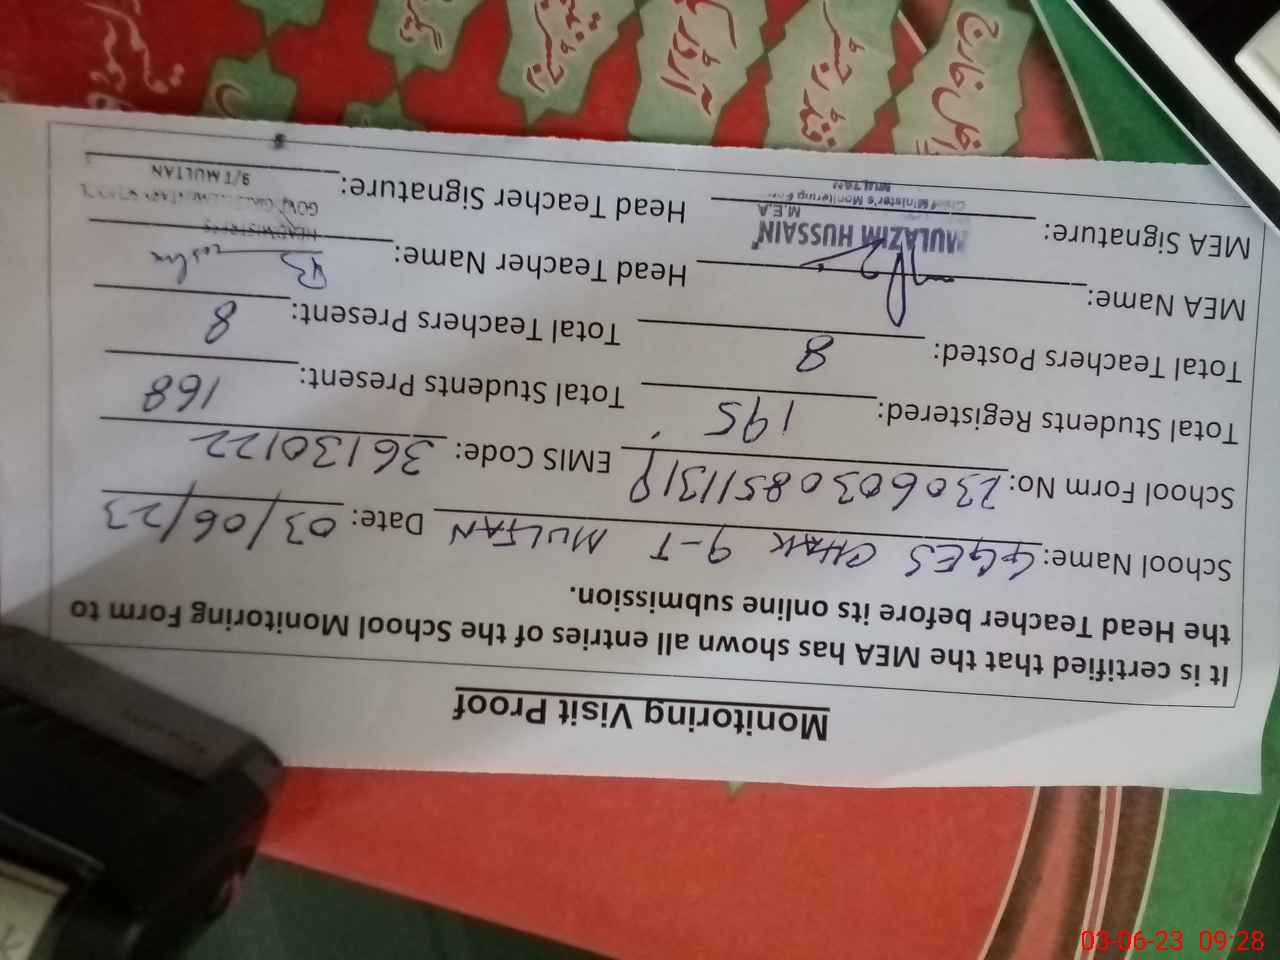 Monitoring Visit Proof
It is certified that the MEA has shown all entries of the School Monitoring Form to
the Head Teacher before its online submission.
School Name: GGES CHAK 9-T MULTAN Date: 03/06/23
School Form No: 2306030851131 EMIS Code: 36130122
Total Students Registered: 195 Total Students Present: 168
Total Teachers Posted: 8 Total Teachers Present: 8
MEA Name: Head Teacher Name:
MULAZIM HUSSAIN
M.E.A
Chief Minister's Monitoring Force
MULTAN
MEA Signature: Head Teacher Signature:
HEADMISTRESS
GOVT GIRLS ELEMENTARY SCHOOL
9/T MULTAN
03-06-23 09:28